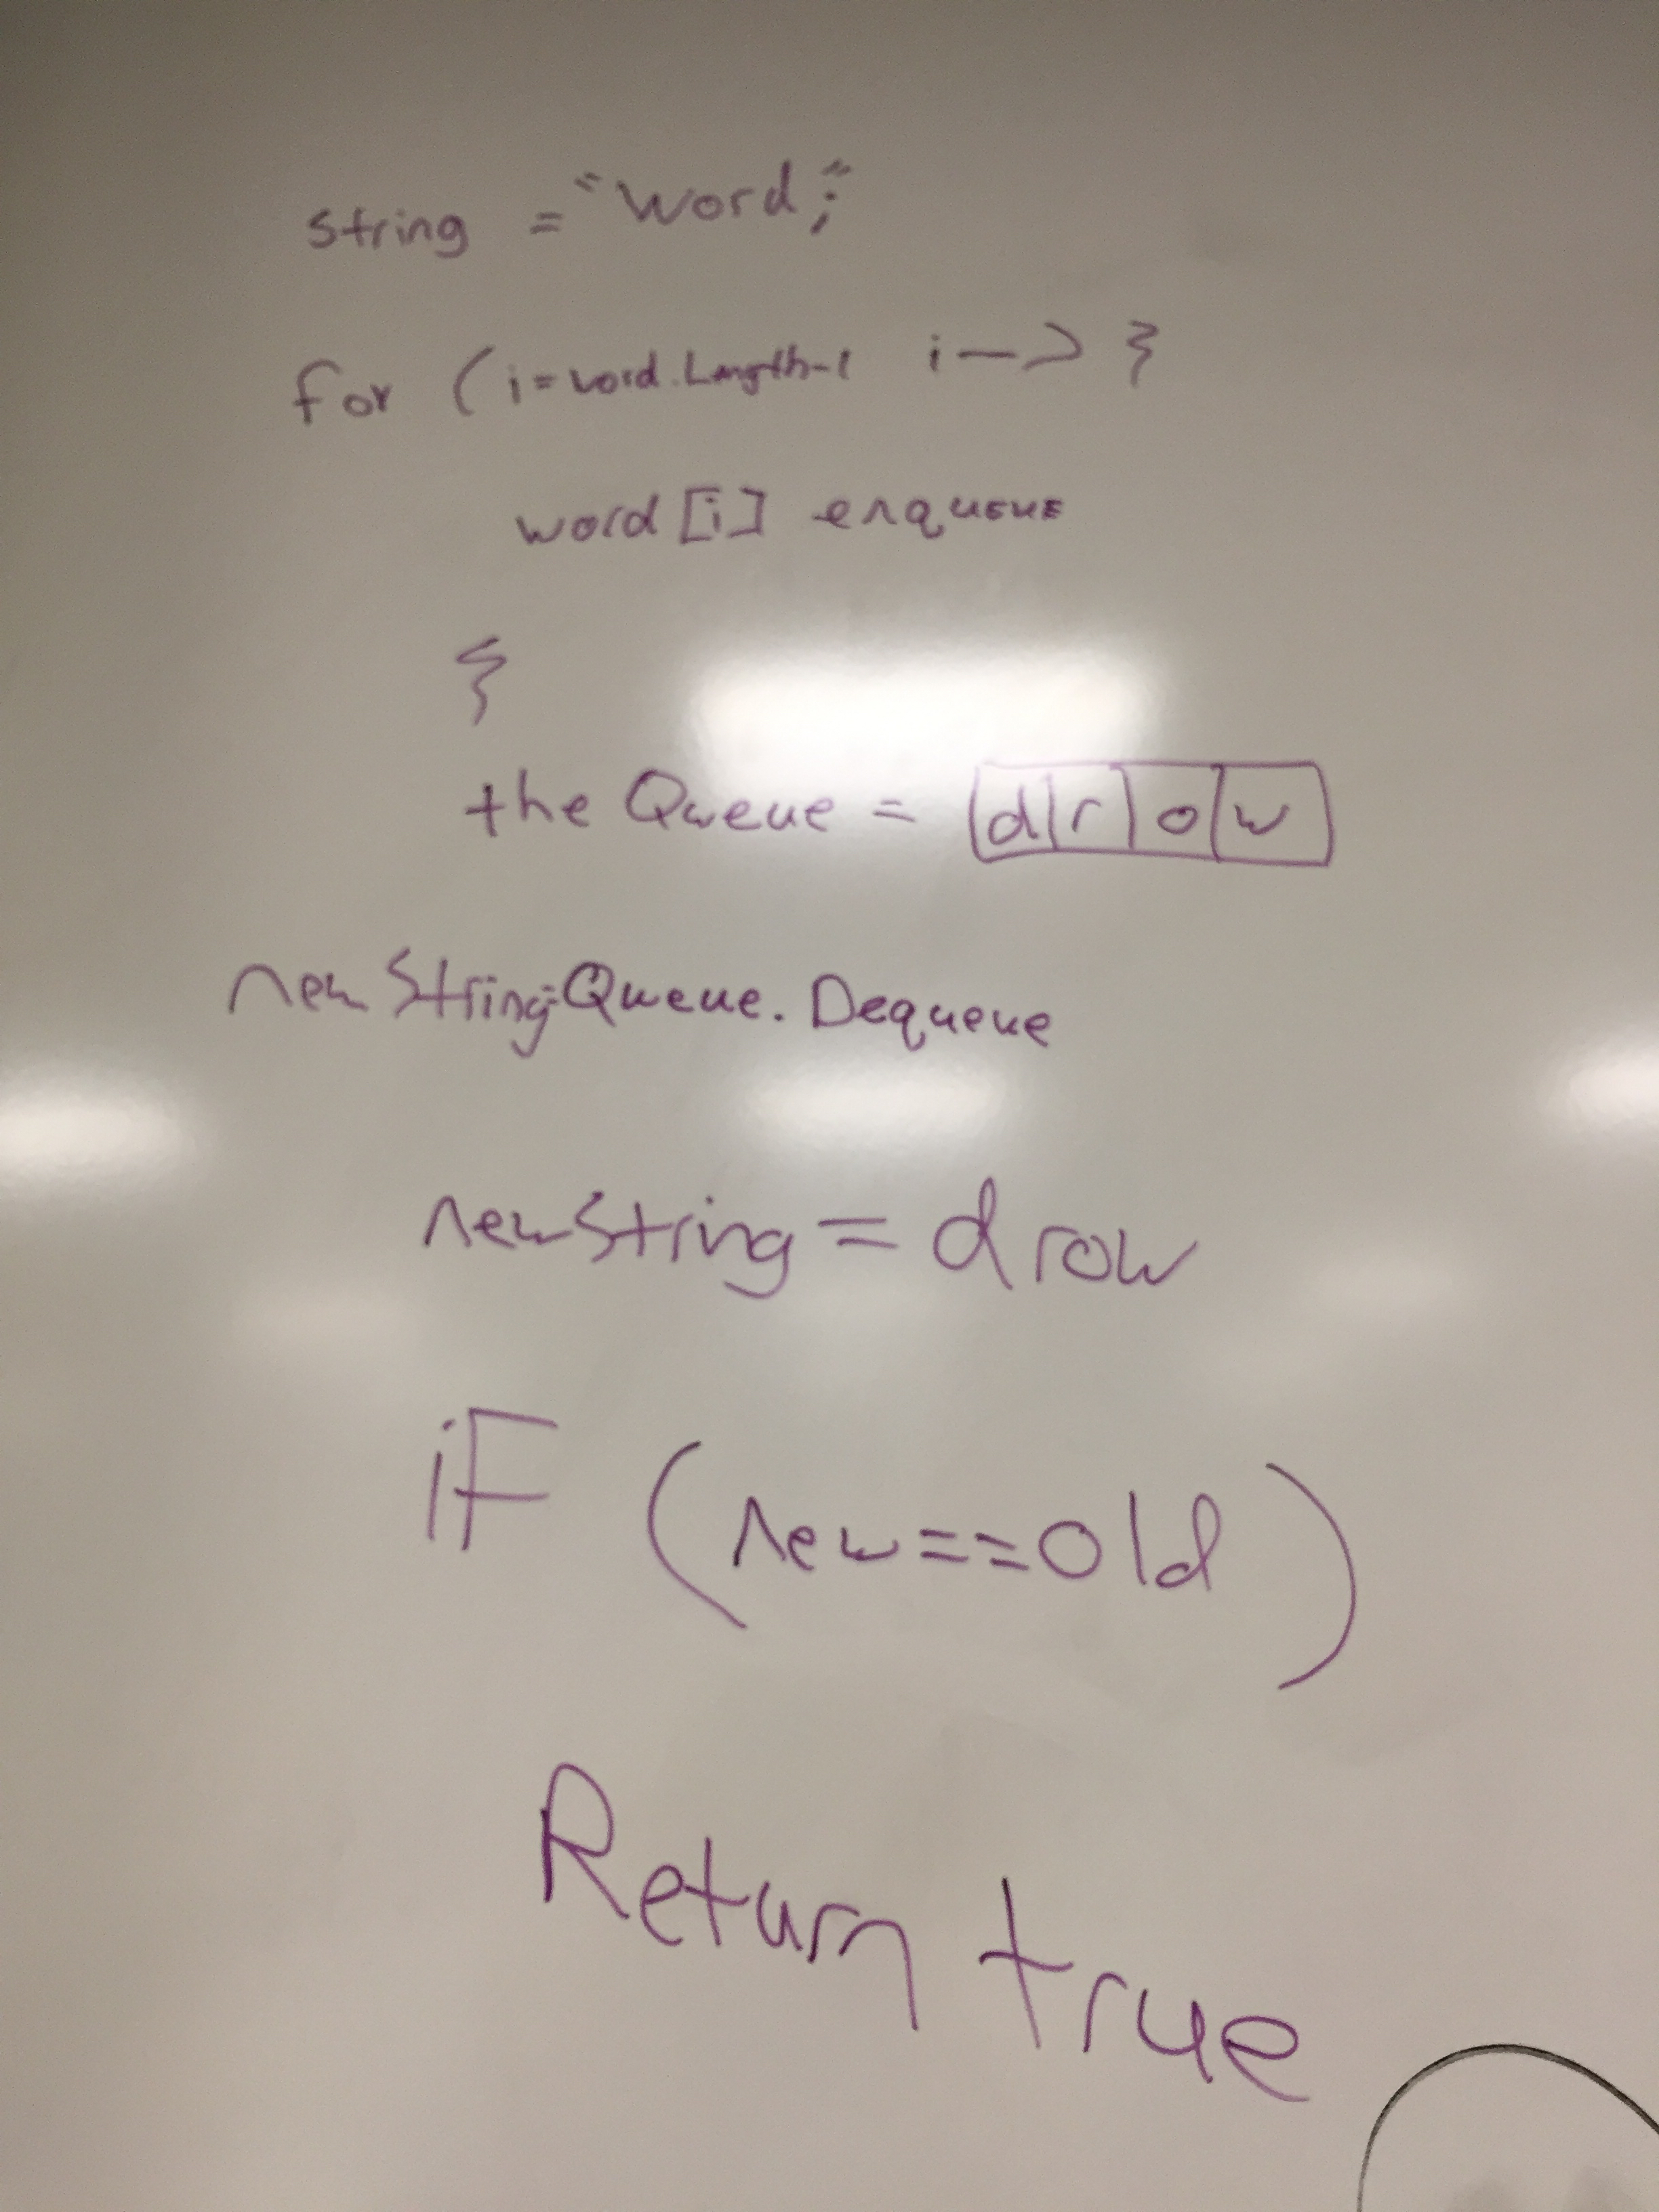 string = "word;"
for (i=word.Length-1 i-->}
word[i] enqueue
}
the Queue = |d|r|o|w|
newString=Queue.Dequeue
newString = drow
iF (new==old)
Return true